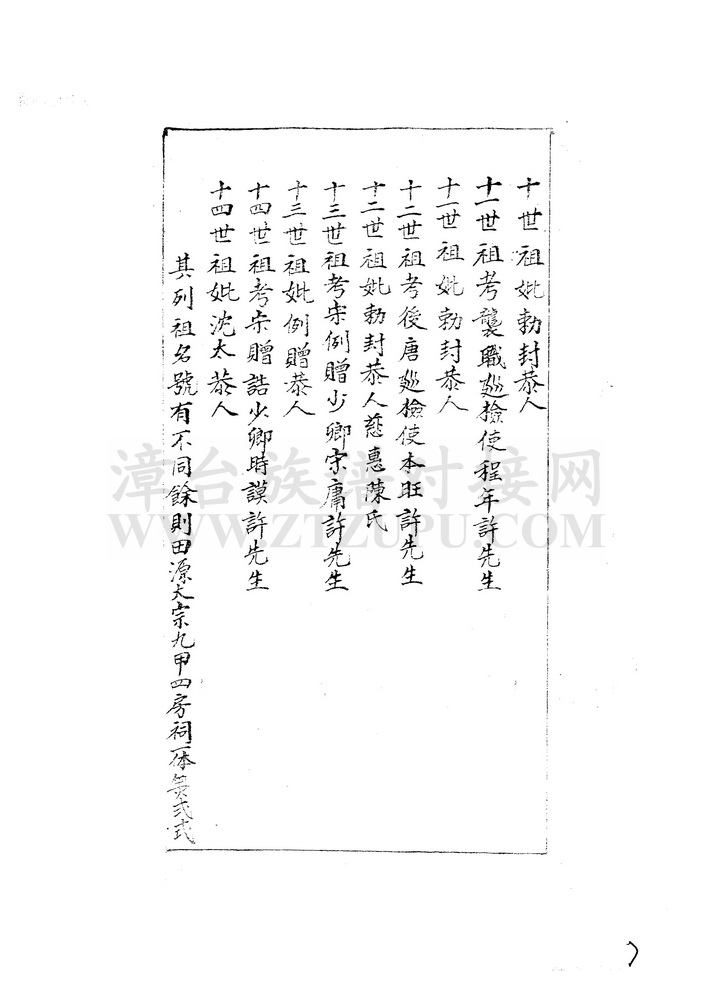 十世祖妣勅封恭人
十一世祖考襲職廵檢使程年許先生
十一世祖妣勅封恭人
十二世祖考後唐廵檢使本旺許先生
十二世祖妣勅封恭人慈惠陳氏
十三世祖考宋例贈少卿宗庸許先生
十三世祖妣例贈恭人
十四世祖考宋贈誥少卿時謨許先生
十四世祖妣沈太恭人
其列祖名號有不同餘則田源大宗九甲四房祠一体無弍式
漳台族譜对接网
WWW.ZTZUPU.COM
7